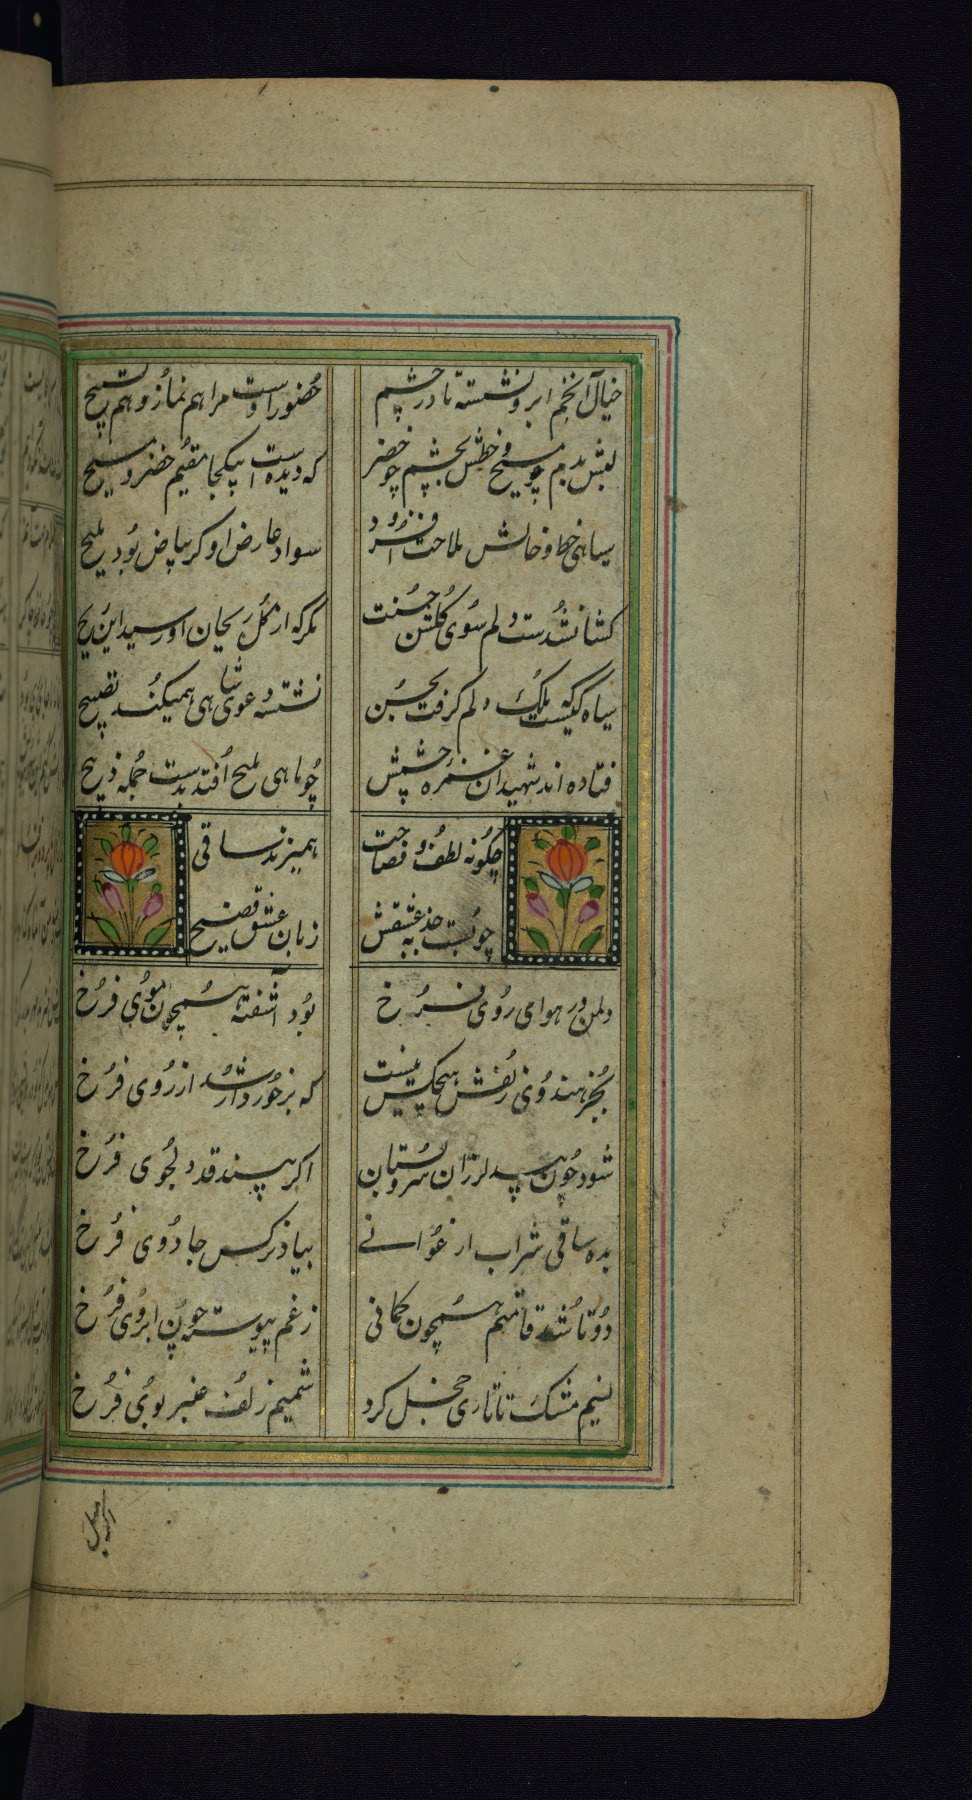 خیال آن خم ابرو نشسته تا در چشم
حضور اوست مرا هم نماز و هم تسبیح
لبش بدم چو مسیح و خطش بچشم چو خضر
که دیده است بیکجا مقیم خضر و مسیح
سیاهی خط و خالش ملاحت افزود
سواد عارض او کر بیاض بود ملیح
کشا نشدست دلم سوی کلشن جنت
مکر که از کل ریحان او رسید این ریح
سیاه کیست که ملک دلم کرفت بحسن
نشسته دعوی شاهی همیکند
فتاده اند شهیدان غمزه چشمش
چو ماهی ملیح افتد بدست جمله ذبیح
چکونه لطف و فصاحت
همیزند ساقی
چو بست جذبه عشقش
زبان عشق فصیح
دلمن در هوای روی فرخ
بود آشفته همچون موی فرخ
بجز هندوی زلفش هیچکس نیست
که برخوردار شد از روی فرخ
شود چون بید لرزان سرو بستان
اکر بیند قد دلجوی فرخ
بده ساقی شراب ارغوانے
بیاد نرکس جادوی فرخ
دوتا شد قامتم همچون کمانی
زغم پیوسته چون ابروی فرخ
نسیم مشک تاتاری خجل کرد
شمیم زلف عنبر بوی فرخ